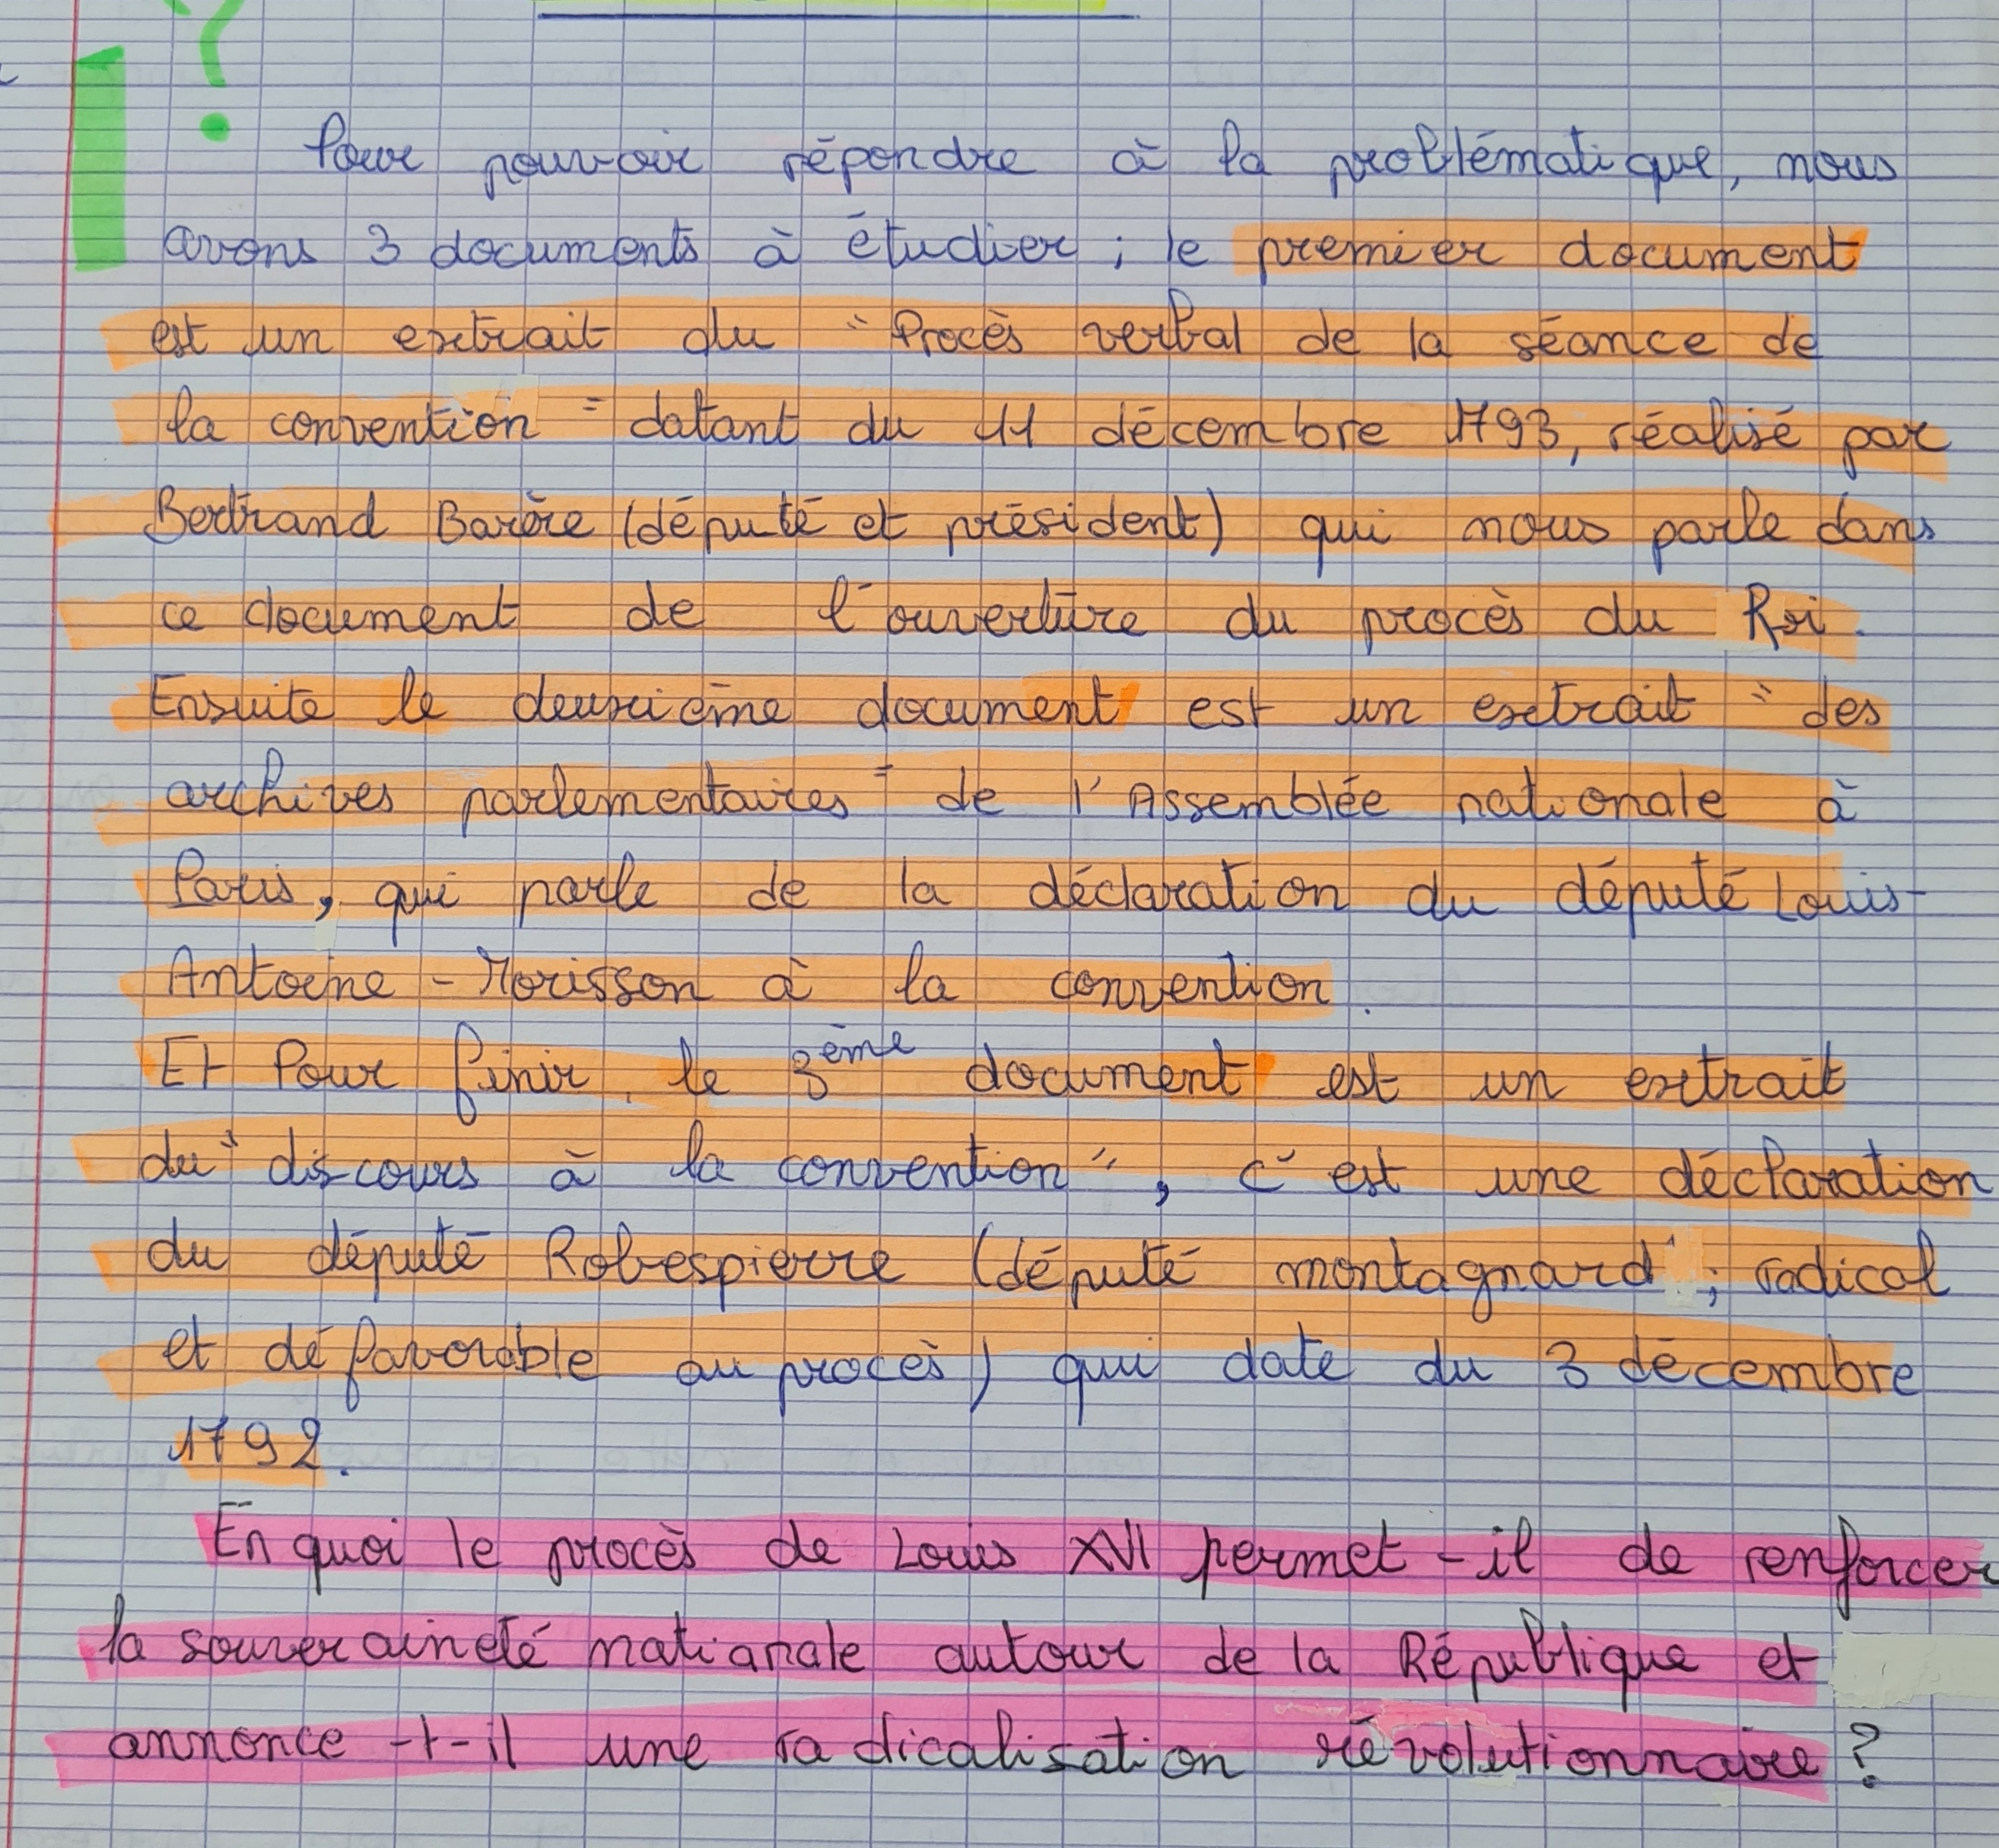 ?
Pour pouvoir répondre à la problématique, nous
avons 3 documents à étudier ; le premier document
est un extrait du " Procès verbal de la séance de
la convention " datant du 11 décembre 1793, réalisé par
Bertrand Barère (député et président) qui nous parle dans
ce document de l'ouverture du procès du Roi.
Ensuite le deuxième document est un extrait " des
archives parlementaires " de l'Assemblée nationale à
Paris, qui parle de la déclaration du député Louis-
Antoine - Morisson à la convention.
Et Pour finir, le 3ème document est un extrait
du " discours à la convention ", c'est une déclaration
du député Robespierre (député montagnard ; radical
et défavorable au procès) qui date du 3 décembre
1792.
En quoi le procès de Louis XVI permet-il de renforcer
la souveraineté nationale autour de la République et
annonce-t-il une radicalisation révolutionnaire ?